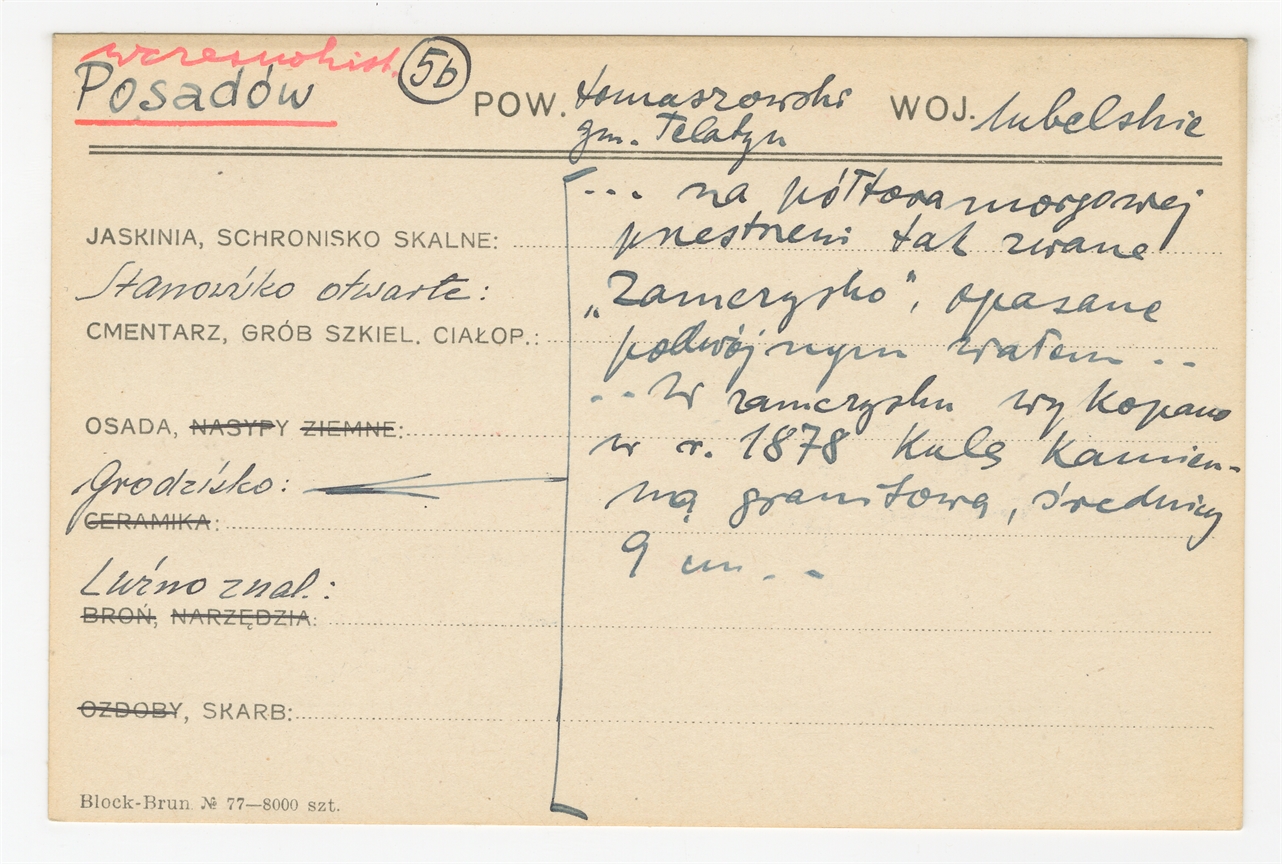 wczesnohist.
Posadów
5b
POW. tomaszowski
gm. Telatyn
WOJ. lubelskie
... na półtoramorgowej
przestrzeni tak zwane
„Zamczysko", opasane
podwójnym wałem ..
.. W zamczysku wykopano
w r. 1878 kulę kamien-
ną granitową, średnicy
9 cm ..
JASKINIA, SCHRONISKO SKALNE:
Stanowisko otwarte:
CMENTARZ, GRÓB SZKIEL. CIAŁOP.:
OSADA, NASYPY ZIEMNE:
Grodzisko:
CERAMIKA:
Luźno znal.:
BROŃ, NARZĘDZIA:
OZDOBY, SKARB:
Block-Brun № 77—8000 szt.